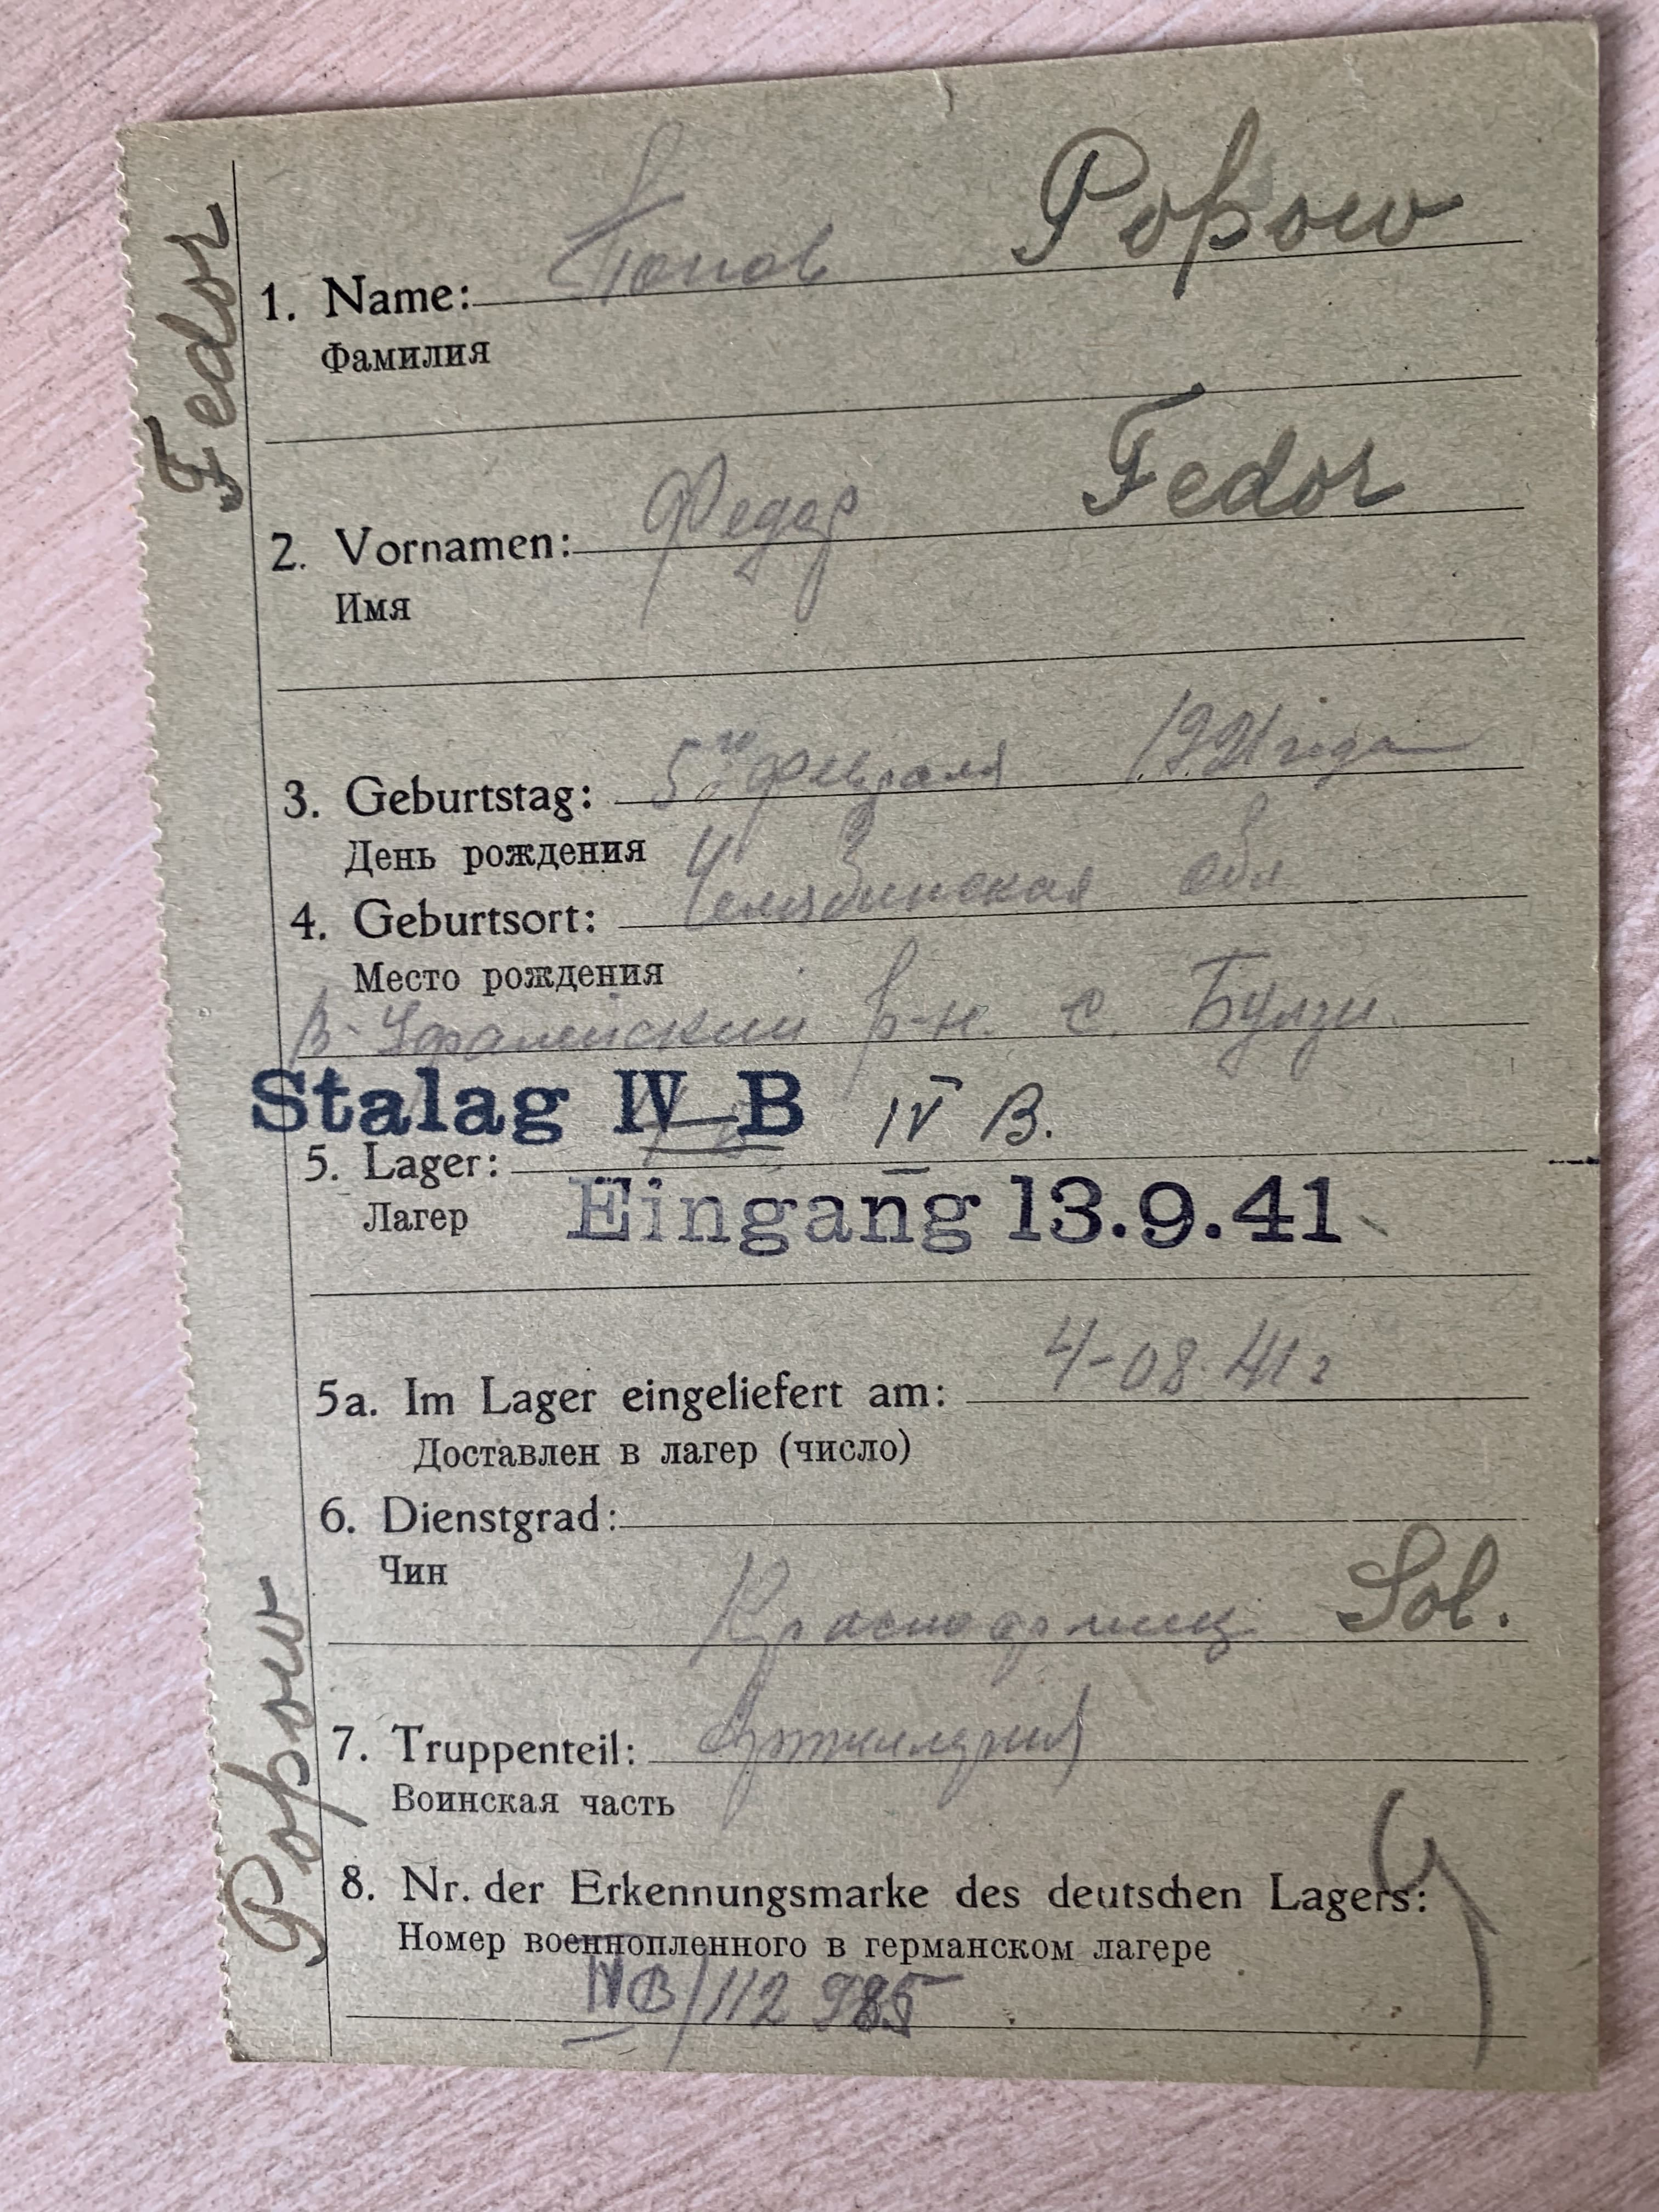 Попов Popow
1. Name:
Фамилия
Федор Fedor
2. Vornamen:
Имя
3. Geburtstag: 5го февраля 1921 года
День рождения
4. Geburtsort: Челябинская обл
Место рождения
В-Уфалейский р-н. с. Булзи.
Stalag IV B IV B.
5. Lager:
Лагер
Eingang 13.9.41
5a. Im Lager eingeliefert am: 4-08.41г
Доставлен в лагер (число)
6. Dienstgrad:
Чин
Красноармиец Sol.
7. Truppenteil: Артилерия
Воинская часть
8. Nr. der Erkennungsmarke des deutschen Lagers:
Номер военнопленного в германском лагере
IV B/112 985
Popow Fedor